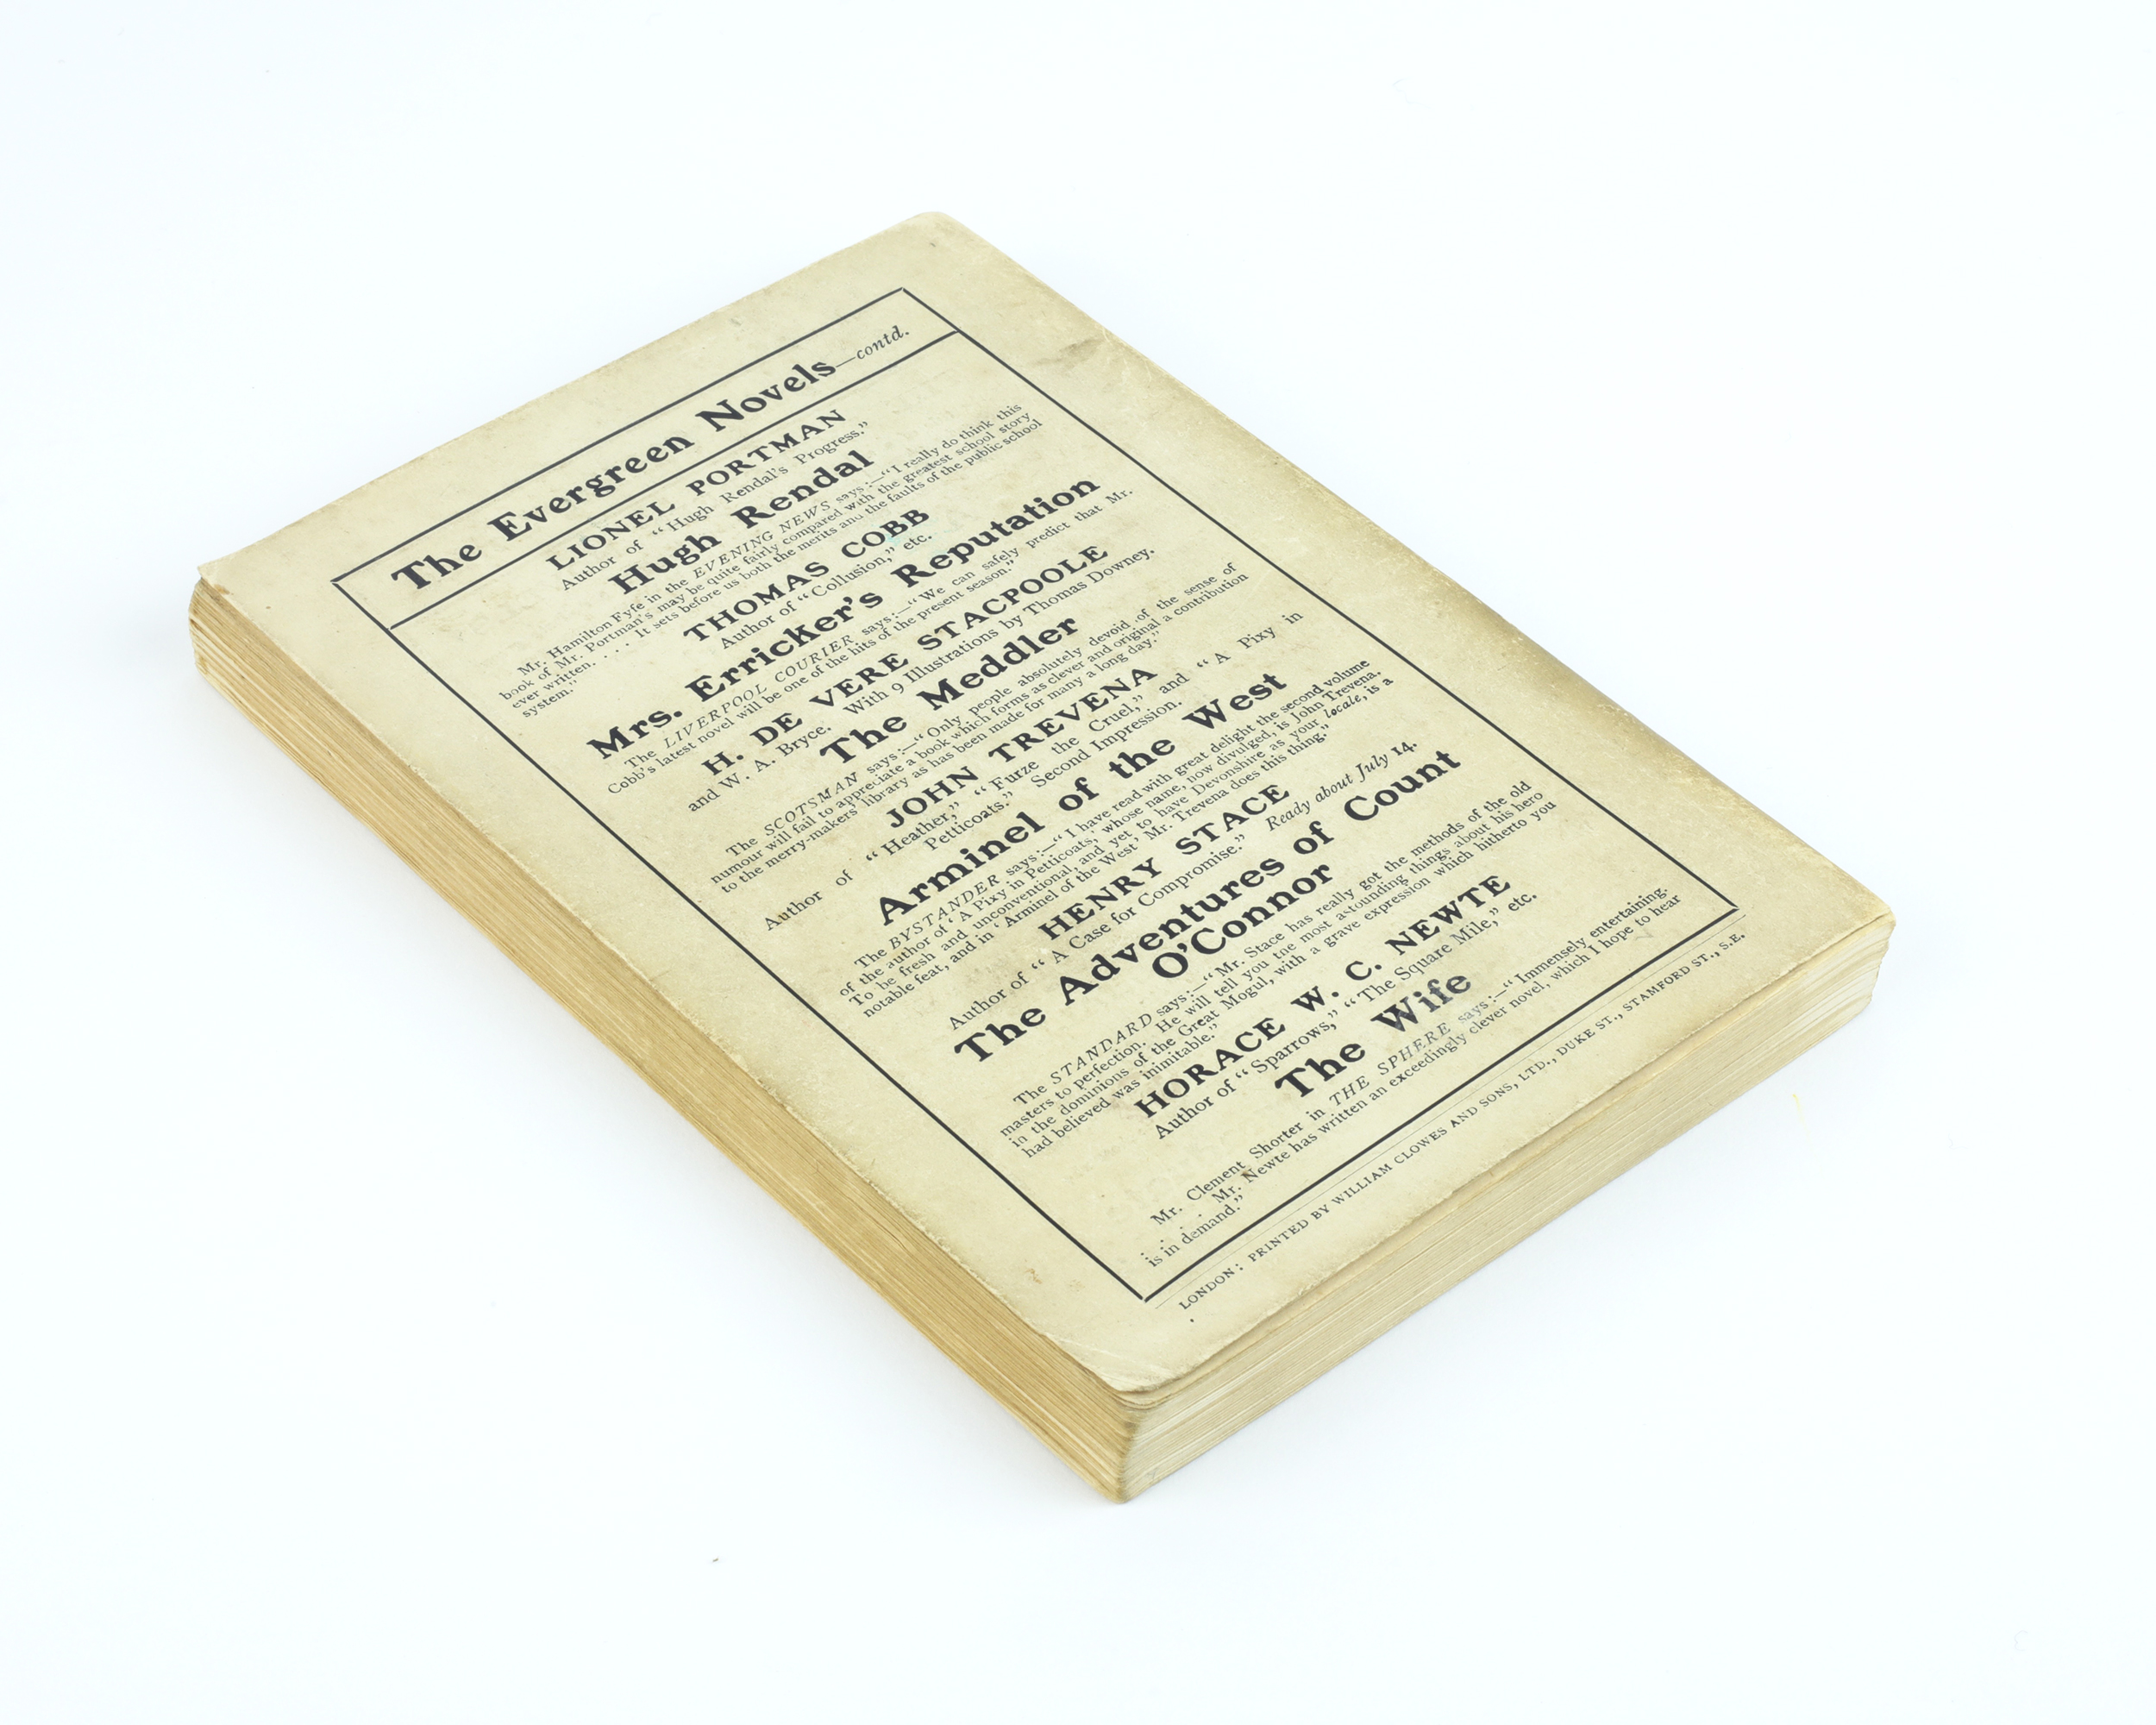 The Evergreen Novels—contd.
LIONEL PORTMAN
Author of “Hugh Rendal's Progress.”
Hugh Rendal
Mr. Hamilton Fyfe in the EVENING NEWS says:—“I really do think this
book of Mr. Portman's may be quite fairly compared with the greatest school story
ever written. . . . It sets before us both the merits and the faults of the public school
system.”
THOMAS COBB
Author of “Collusion,” etc.
Mrs. Erricker's Reputation
The LIVERPOOL COURIER says:—“We can safely predict that Mr.
Cobb's latest novel will be one of the hits of the present season.”
H. DE VERE STACPOOLE
and W. A. Bryce. With 9 Illustrations by Thomas Downey.
The Meddler
The SCOTSMAN says:—“Only people absolutely devoid of the sense of
humour will fail to appreciate a book which forms as clever and original a contribution
to the merry-makers' library as has been made for many a long day.”
JOHN TREVENA
Author of “Heather,” “Furze the Cruel,” and “A Pixy in
Petticoats.” Second Impression.
Arminel of the West
The BYSTANDER says:—“I have read with great delight the second volume
of the author of ‘A Pixy in Petticoats,’ whose name, now divulged, is John Trevena.
To be fresh and unconventional, and yet to have Devonshire as your locale, is a
notable feat, and in ‘Arminel of the West’ Mr. Trevena does this thing.”
HENRY STACE
Author of “A Case for Compromise.” Ready about July 14.
The Adventures of Count
O'Connor
The STANDARD says:—“Mr. Stace has really got the methods of the old
masters to perfection. He will tell you the most astounding things about his hero
in the dominions of the Great Mogul, with a grave expression which hitherto you
had believed was inimitable.”
HORACE W. C. NEWTE
Author of “Sparrows,” “The Square Mile,” etc.
The Wife
Mr. Clement Shorter in THE SPHERE says:—“Immensely entertaining.
. . . Mr. Newte has written an exceedingly clever novel, which I hope to hear
is in demand.”
LONDON: PRINTED BY WILLIAM CLOWES AND SONS, LTD., DUKE ST., STAMFORD ST., S.E.